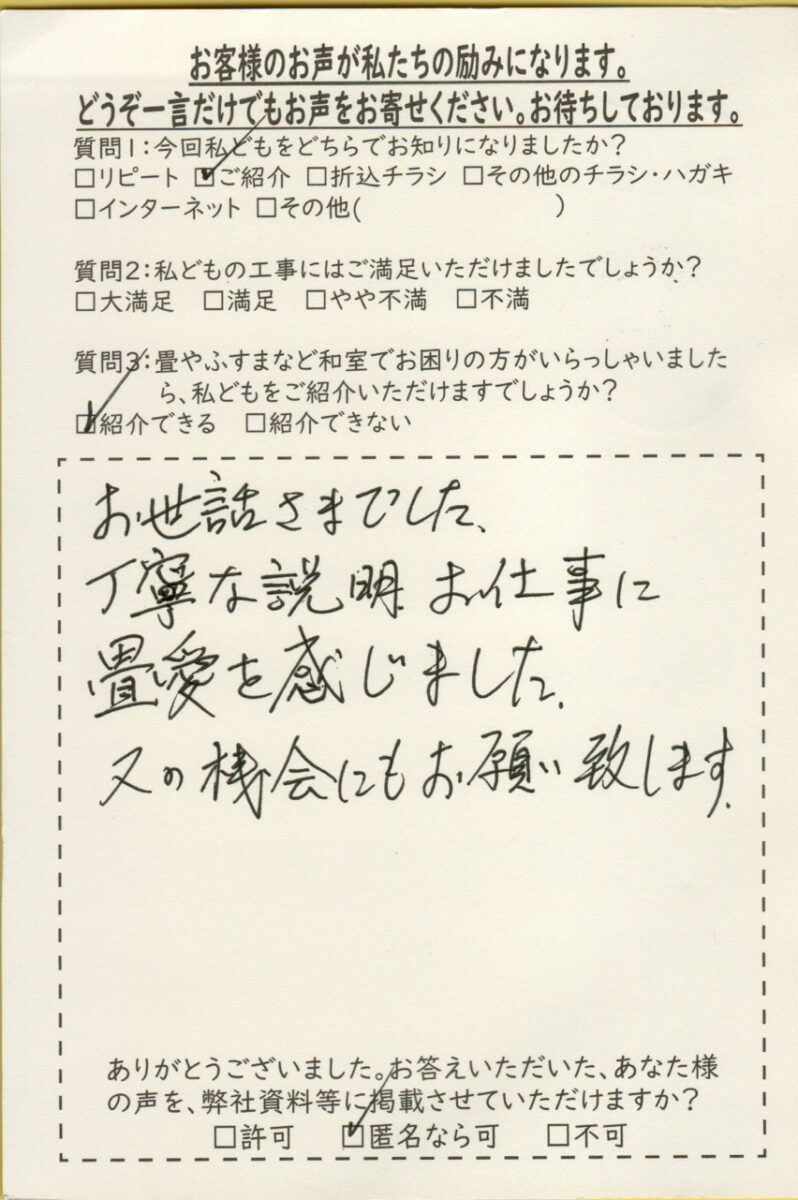 お客様のお声が私たちの励みになります。
どうぞ一言だけでもお声をお寄せください。お待ちしております。
質問1：今回私どもをどちらでお知りになりましたか？
□リピート ☑ご紹介 □折込チラシ □その他のチラシ・ハガキ
□インターネット □その他(　　　　　)
質問2：私どもの工事にはご満足いただけましたでしょうか？
□大満足 □満足 □やや不満 □不満
質問3：畳やふすまなど和室でお困りの方がいらっしゃいました
ら、私どもをご紹介いただけますでしょうか？
☑紹介できる □紹介できない
お世話さまでした、
丁寧な説明、お仕事に
畳愛を感じました。
又の機会にもお願い致します。
ありがとうございました。お答えいただいた、あなた様
の声を、弊社資料等に掲載させていただけますか？
□許可 ☑匿名なら可 □不可